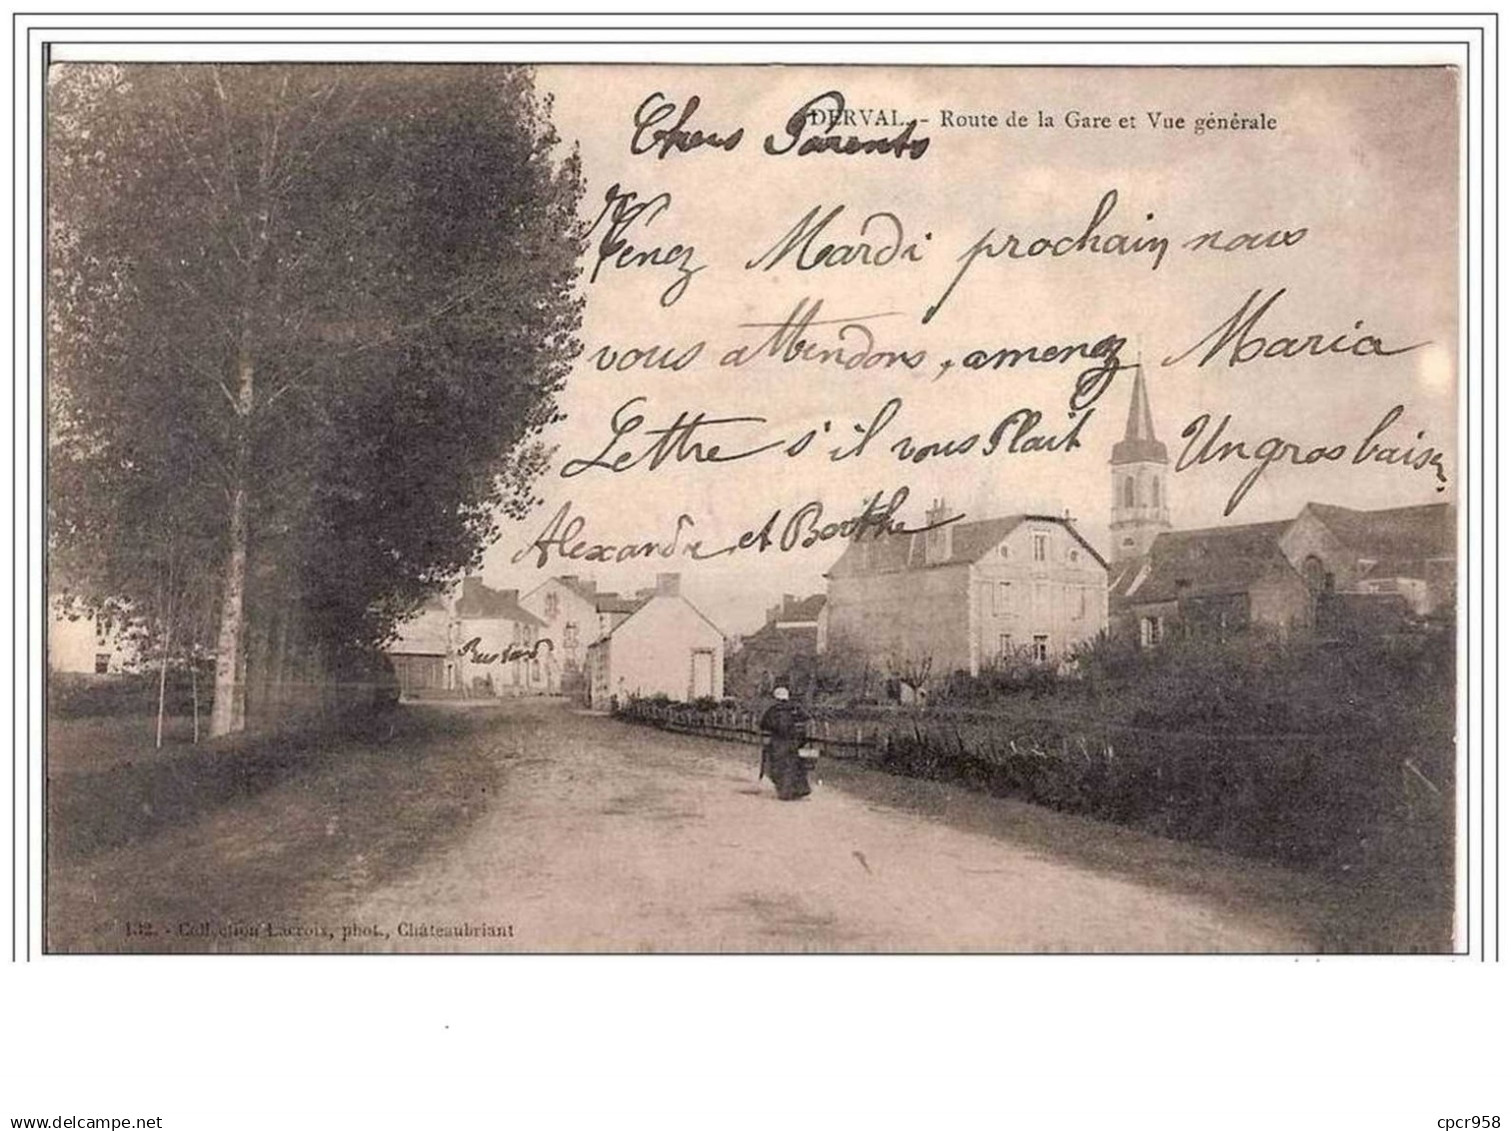 DERVAL. - Route de la Gare et Vue générale
Chers Parents
Venez Mardi prochain nous
vous attendons, amenez Maria
Lettre s'il vous Plait Un gros baiser
Alexandre et Berthe
132. - Collection Lacroix, phot., Châteaubriant
delcampe.net
cpcr958